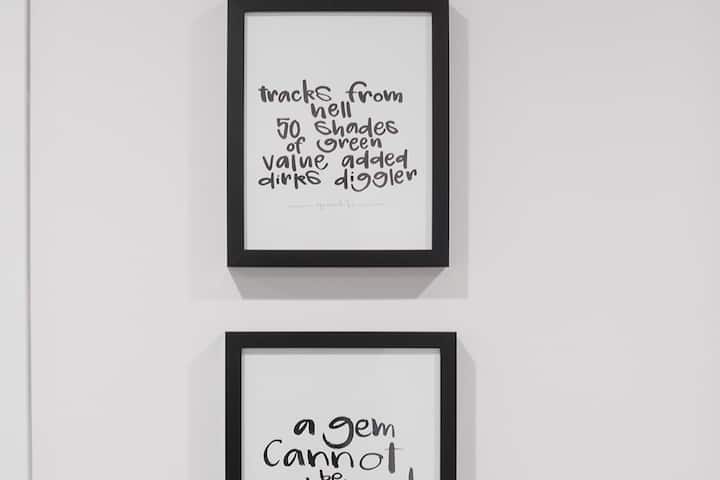 tracks from
hell
50 shades
of green
value added
dirks diggler
a gem
Cannot
be